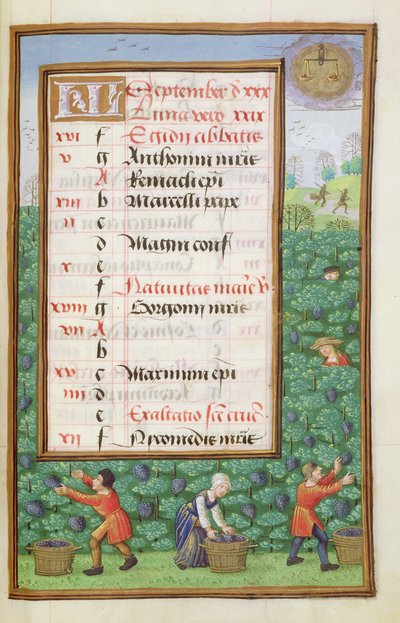 KL September d xxx
Luna vero xxix
xvi f Egidii abbatis
v g Anthonini m̅ris
A Remacli ep̅i
xiii b Marcelli pape
ii c
d Magni conf
x e
f Natiuitas marie v̅
xviii g Gorgonii m̅ris
vii A
b
xv c Maximini ep̅i
iiii d
e Exaltatio sc̅e crucis
xii f Nicomedis m̅ris